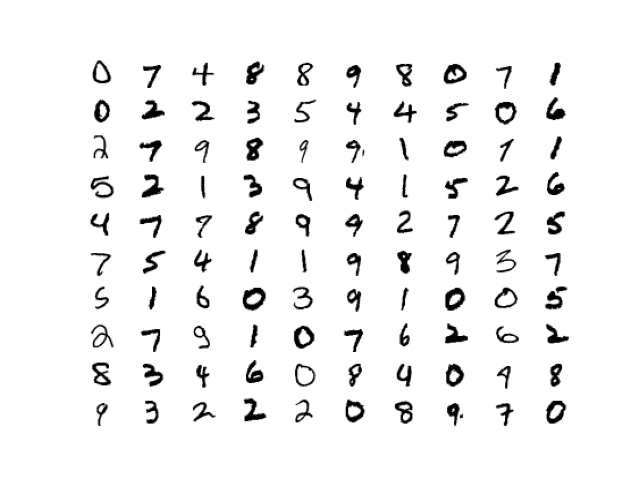 0 7 4 8 8 9 8 0 7 1
0 2 2 3 5 4 4 5 0 6
2 7 9 8 9 9 1 0 7 1
5 2 1 3 9 4 1 5 2 6
4 7 7 8 9 9 2 7 2 5
7 5 4 1 1 9 8 9 3 7
5 1 6 0 3 9 1 0 0 5
2 7 9 1 0 7 6 2 6 2
8 3 4 6 0 8 4 0 9 8
9 3 2 2 2 0 8 9 7 0